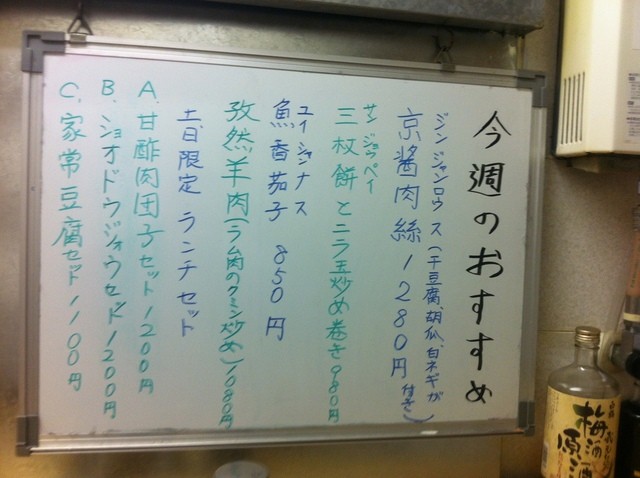 今週のおすすめ
ジンジャンロウス(干豆腐、胡瓜、白ネギが付き)
京醤肉絲 1280円
サンジョウペイ
三杖餅とニラ玉炒め巻き980円
ユイシャンナス
魚香茄子 850円
孜然羊肉(ラム肉のクミン炒め)1080円
土日限定 ランチセット
A. 甘酢肉団子セット1200円
B. ショオドウジョウセット1200円
C. 家常豆腐セット1100円
梅酒